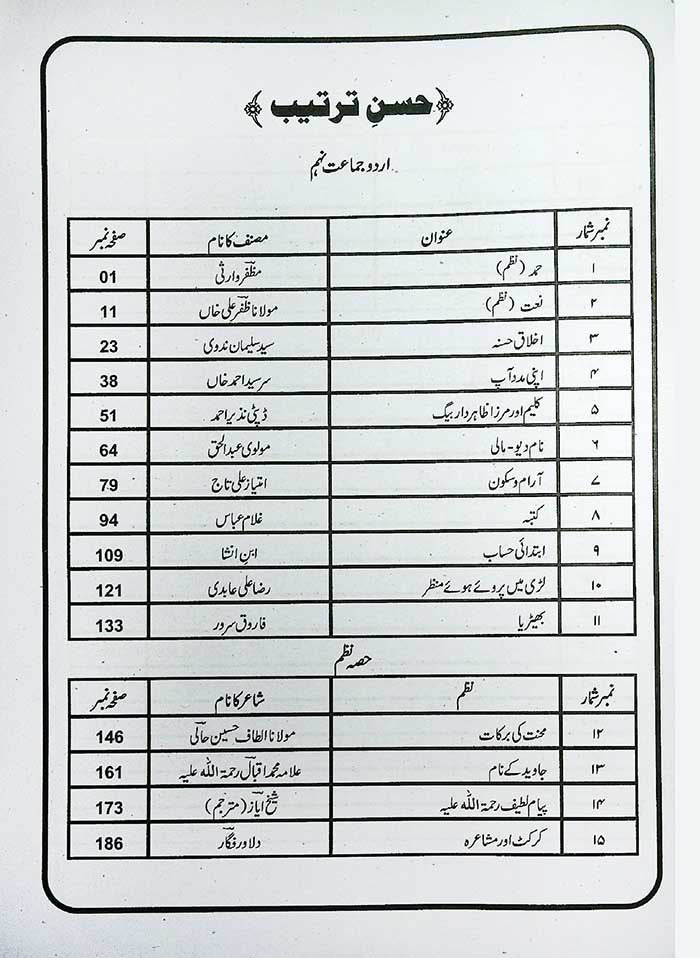 حسنِ ترتیب
اردو جماعت نہم
نمبر شمار عنوان مصنف کا نام صفحہ نمبر
۱ حمد (نظم) مظفر وارثی 01
۲ نعت (نظم) مولانا ظفر علی خاں 11
۳ اخلاق حسنہ سید سلیمان ندوی 23
۴ اپنی مدد آپ سر سید احمد خاں 38
۵ کلیم اور مرزا ظاہر دار بیگ ڈپٹی نذیر احمد 51
۶ نام دیو-مالی مولوی عبدالحق 64
۷ آرام و سکون امتیاز علی تاج 79
۸ کتبہ غلام عباس 94
۹ ابتدائی حساب ابنِ انشا 109
۱۰ لڑی میں پروئے ہوئے منظر رضا علی عابدی 121
۱۱ بھیڑیا فاروق سرور 133
حصہ نظم
نمبر شمار نظم شاعر کا نام صفحہ نمبر
۱۲ محنت کی برکات مولانا الطاف حسین حالی 146
۱۳ جاوید کے نام علامہ محمد اقبال رحمۃ اللہ علیہ 161
۱۴ پیام لطیف رحمۃ اللہ علیہ شیخ ایاز (مترجم) 173
۱۵ کرکٹ اور مشاعرہ دلاور فگار 186